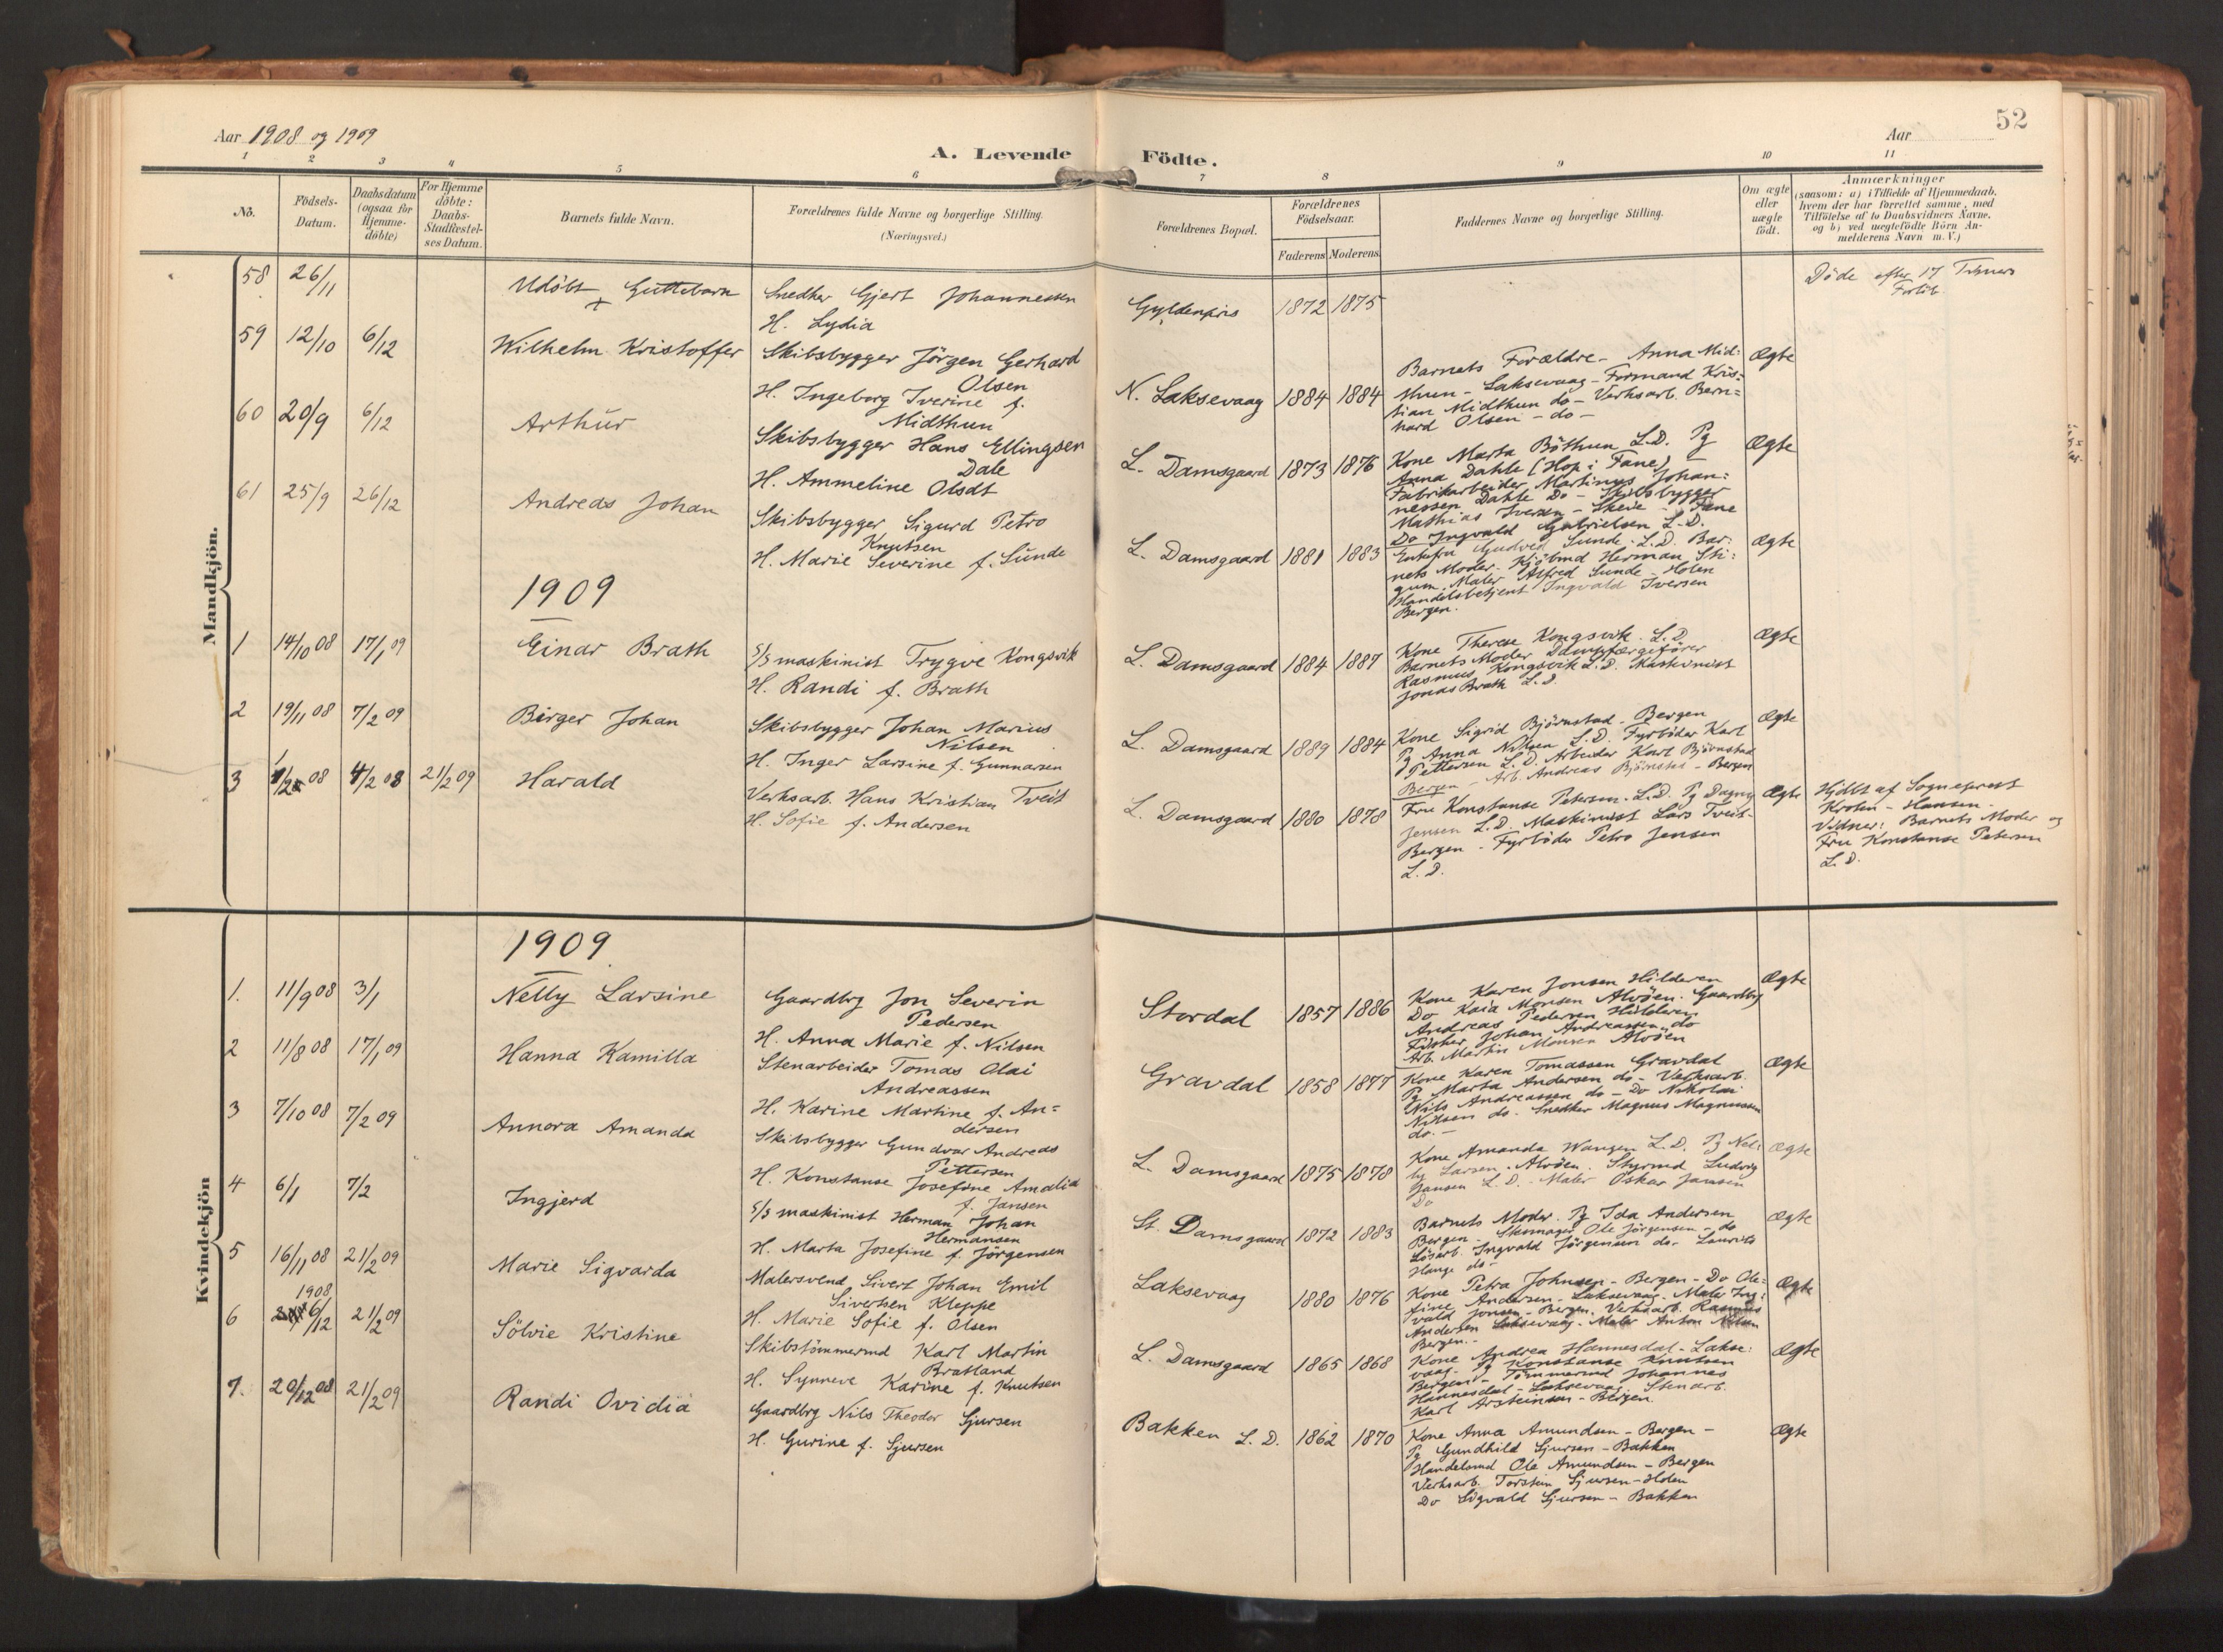 52
Aar 1908 og 1909
Aar
A. Levende Födte.
1 2 3 4 5 6 7 8 9 10 11
No.
Födsels-
Datum.
Daabsdatum
(ogsaa for
Hjemme-
döbte)
For Hjemme
döbte:
Daabs-
Stadfestel-
ses Datum.
Barnets fulde Navn.
Forældrenes fulde Navne og borgerlige Stilling.
(Næringsvei.)
Forældrenes Bopæl.
Forældrenes
Födselsaar.
Faderens Moderens
Faddernes Navne og borgerlige Stilling.
Om ægte
eller
uægte
födt.
Anmærkninger
(saasom: a) i Tilfælde af Hjemmedaab,
hvem der har forrettet samme, med
Tilföielse af to Daabsvidners Navne,
og b) ved uægtefödte Börn An-
melderens Navn m. V.)
Mandkjön.
58 26/11
Udöbt Guttebarn
+
Snedker Gjert Johannessen
H. Lydia
Gyldenpris 1872 1875
Döde efter 17 Timers
Forlöb
59 12/10 6/12
Wilhelm Kristoffer
Skibsbygger Jörgen Gerhard
Olsen
H. Ingeborg Iverine f.
Midthun
N. Laksevaag 1884 1884
Barnets Forældre - Anna Mid:
thun - Laksevaag - Formand Kris:
tian Midthun do - Verksarb. Bern=
hard Olsen - do -
Ægte
60 20/9 6/12
Arthur
Skibsbygger Hans Ellingsen
Dale
H. Ammeline Olsdt
L. Damsgaard 1873 1876
Kone Marta Böthun L.D. Pg
Anna Dahle (Hop i Fane)
Fabrikarbeider Martinus Johan:
nessen Dahle Do - Skibsbygger
Mathias Iversen - Skeie - Fane
Do Ingvald Gabrielsen L.D.
Ægte
61 25/9 26/12
Andreas Johan
Skibsbygger Sigurd Petro
Knutsen
H. Marie Severine f. Sunde
L. Damsgaard 1881 1883
Enkefru Sunde. L.D. Bar:
nets Moder. Kjöbmd Herman
Maler Alfred Sunde - Holen
Handelsbetjent Ingvald Iversen
Bergen.
Ægte
1909
1 14/10 08 17/1 09
Einar Brath
S/S maskinist Trygve Kongsvik
H. Randi f. Brath
L. Damsgaard 1884 1887
Kone Therese Kongsvik L.D.
Barnets Moder Dampfærgeförer
Rasmus Kongsvik L.D. Maskinist
Jonas Brath L.D.
Ægte
2 19/11 08 7/2 09
Birger Johan
Skibsbygger Johan Marius
Nilsen
H. Inger Larsine f. Gunnarsen
L. Damsgaard 1889 1884
Kone Sigrid Björnstad - Bergen
Pg Anna Nilsen L.D. Fyrböder Karl
Pettersen L.D. Arbeider Karl Björnstad
Bergen - Arb. Andreas Björnstad - Bergen
Ægte
3 08 4/2 08 21/2 09
Harald
Verksarb. Hans Kristian Tveit
H. Sofie f. Andersen
L. Damsgaard 1880 1878
Fru Konstanse Petersen. L.D. Pg Dagny
Jensen L.D. Maskinist Lars Tveit-
Bergen - Fyrböder Petro Jensen
L.D.
Ægte
Hjdbt af Sogneprest
Krohn-Hansen.
Vidner: Barnets Moder og
Fru Konstanse Petersen
L.D.
Kvindekjön
1909
1. 11/9 08 3/1
Nelly Larsine
Gaardbrg Jon Severin
Pedersen
H. Anna Marie f. Nilsen
Stordal 1857 1886
Kone Karen Jonsen Hilderen
Do Kaia Monsen Alvöen. Gaardbrg
Andreas Pedersen Hilderen
Fisker Johan Andreassen do
Arb. Martin Monsen Alvöen
Ægte
2 11/8 08 17/1 09
Hanna Kamilla
Stenarbeider Tomas Olai
Andreassen
H. Karine Martine f. An=
dersen
Gravdal 1858 1877
Kone Karen Tomassen Gravdal
Pg Marta Andersen do - Verksarb.
Nils Andreassen do - Do Nikolai
Nilsen do. Snedker Magnus Magnussen
do. -
Ægte
3 7/10 08 7/2 09
Annora Amanda
Skibsbygger Gundvar Andreas
Pettersen
H. Konstanse Josefine Amalia
f. Jansen
L. Damsgaard 1875 1878
Kone Amanda Wangen L.D. Pg Nel:
ly Larsen. Alvöen. Styrmd Ludvig
Jansen L.D. - Maler Oskar Jansen
Do
Ægte
4 6/1 7/2
Ingjerd
S/S maskinist Herman Johan
Hermansen
H. Marta Josefine f. Jörgensen
St. Damsgaard 1872 1883
Barnets Moder. Pg Ida Andersen
Bergen - Skomager Ole Jörgensen - do
Lösarb. Ingvald Jörgensen do. Laurits
Hauge do -
Ægte
5 16/11 08 21/2 09
Marie Sigvarda
Malersvend Sivert Johan Emil
Sivertsen Kleppe
H. Marie Sofie f. Olsen
Laksevaag 1880 1876
Kone Petra Johnsen - Bergen - Do Ole:
fine Andersen - Laksevaag. Maler Ing:
vald Jonsen - Bergen. Verksarb. Rasmus
Andersen Laksevaag - Maler Anton Nilsen
Bergen. -
Ægte
6 1908 6/12 21/2 09
Sölvie Kristine
Skibstömmermd Karl Martin
Bratland
H. Synneve Karine f. Knutsen
L. Damsgaard 1865 1868
Kone Andrea Hannesdal - Lakse:
vaag. Pg Konstanse Knutsen
Bergen - Tömmermd Johannes
Hannesdal - Laksevaag. Stenarb.
Karl Arsteinsen - Bergen
Ægte
7. 20/12 08 21/2 09
Randi Ovidia
Gaardbrg Nils Theodor Sjursen
H. Gurine f. Sjursen
Bakken L.D. 1862 1870
Kone Anna Amundsen - Bergen -
Pg Gundhild Sjursen - Bakken
Handelsmd Ole Amundsen - Bergen
Verksarb. Torstein Sjursen - Holen
Do Sigvald Sjursen - Bakken
Ægte